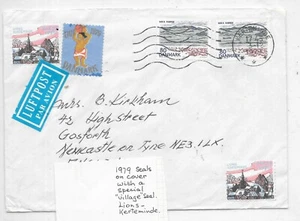 80 DANMARK
80 DANMARK
DANMARK
LUFTPOST
PAR AVION
Mrs. B. Kirkham
42 High Street
Gosforth
Newcastle on Tyne NE3.1LX.
1979 Seals
on cover
with a
special
"Village" Seal.
Lions-
Kerteminde.